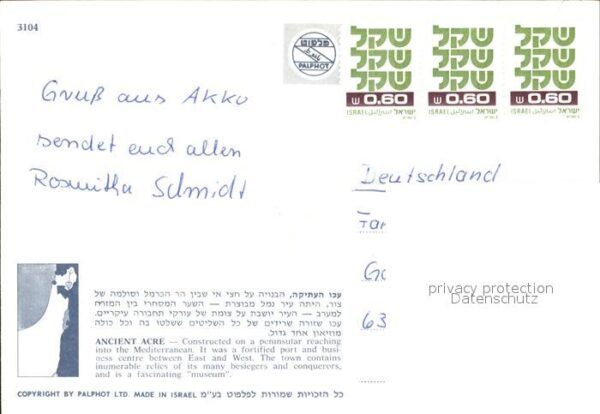 3104
פלפוט
PALPHOT
שקל שקל שקל
שקל שקל שקל
שקל שקל שקל
ש 0.60 ש 0.60 ש 0.60
ISRAEL اسرائيل ישראל ISRAEL اسرائيل ישראל ISRAEL اسرائيل ישראל
Gruß aus Akko
sendet euch allen
Roswitha Schmidt
Deutschland
63
privacy protection
Datenschutz
עכו העתיקה, הבנויה על חצי אי שבין הר הכרמל וסולמה של
צור, היתה עיר נמל מבוצרת — השער המסחרי בין המזרח
למערב — העיר יושבת על צומת של עורקי תחבורה עיקריים.
עכו שזורה שרידים של כל השליטים ששלטו בה וכל כולה
מוזיאון אחד גדול.
ANCIENT ACRE — Constructed on a peninsular reaching
into the Mediterranean. It was a fortified port and busi-
ness centre between East and West. The town contains
inumerable relics of its many besiegers and conquerors,
and is a fascinating "museum".
COPYRIGHT BY PALPHOT LTD. MADE IN ISRAEL כל הזכויות שמורות לפלפוט בע"מ